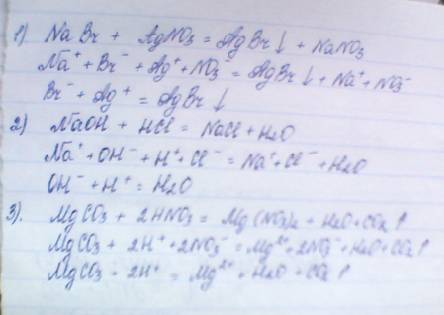 1) NaBr + AgNO3 = AgBr↓ + NaNO3
Na⁺ + Br⁻ + Ag⁺ + NO3⁻ = AgBr↓ + Na⁺ + NO3⁻
Br⁻ + Ag⁺ = AgBr↓
2) NaOH + HCl = NaCl + H2O
Na⁺ + OH⁻ + H⁺ + Cl⁻ = Na⁺ + Cl⁻ + H2O
OH⁻ + H⁺ = H2O
3). MgCO3 + 2HNO3 = Mg(NO3)2 + H2O + CO2↑
MgCO3 + 2H⁺ + 2NO3⁻ = Mg²⁺ + 2NO3⁻ + H2O + CO2↑
MgCO3 + 2H⁺ = Mg²⁺ + H2O + CO2↑